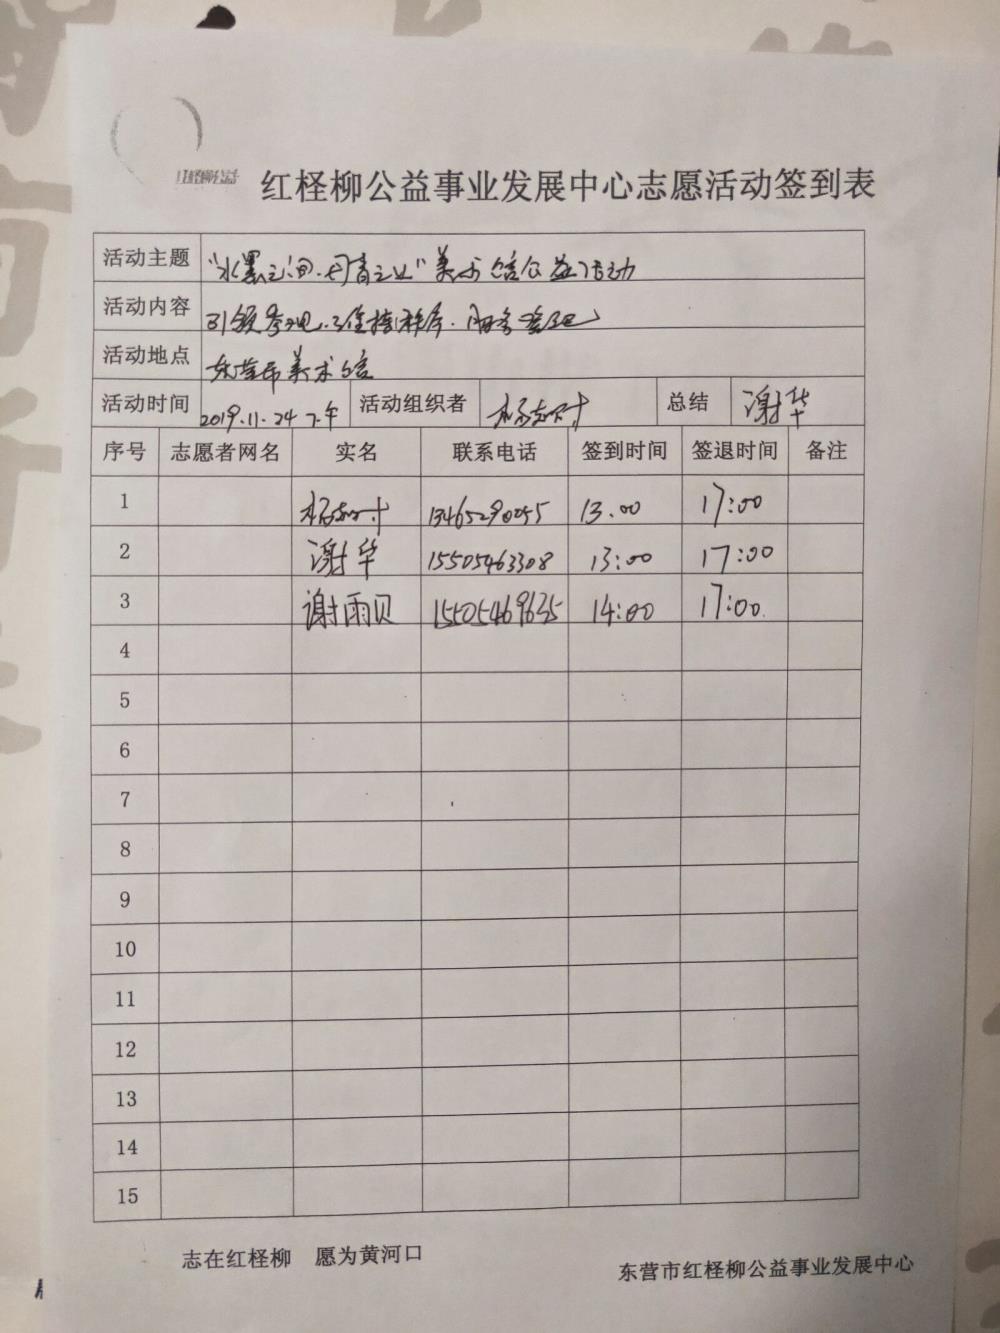 红柽柳公益
红柽柳公益事业发展中心志愿活动签到表
活动主题 "水墨之间·丹青之上"美术馆公益活动
活动内容 引领参观、维持秩序、服务登记
活动地点 东营市美术馆
活动时间 2019.11.24 下午 活动组织者 总结 谢华
序号 志愿者网名 实名 联系电话 签到时间 签退时间 备注
1 13465290055 13.00 17:00
2 谢华 15505463308 13:00 17:00
3 谢雨贝 15505469635 14:00 17:00.
4
5
6
7
8
9
10
11
12
13
14
15
志在红柽柳 愿为黄河口
东营市红柽柳公益事业发展中心